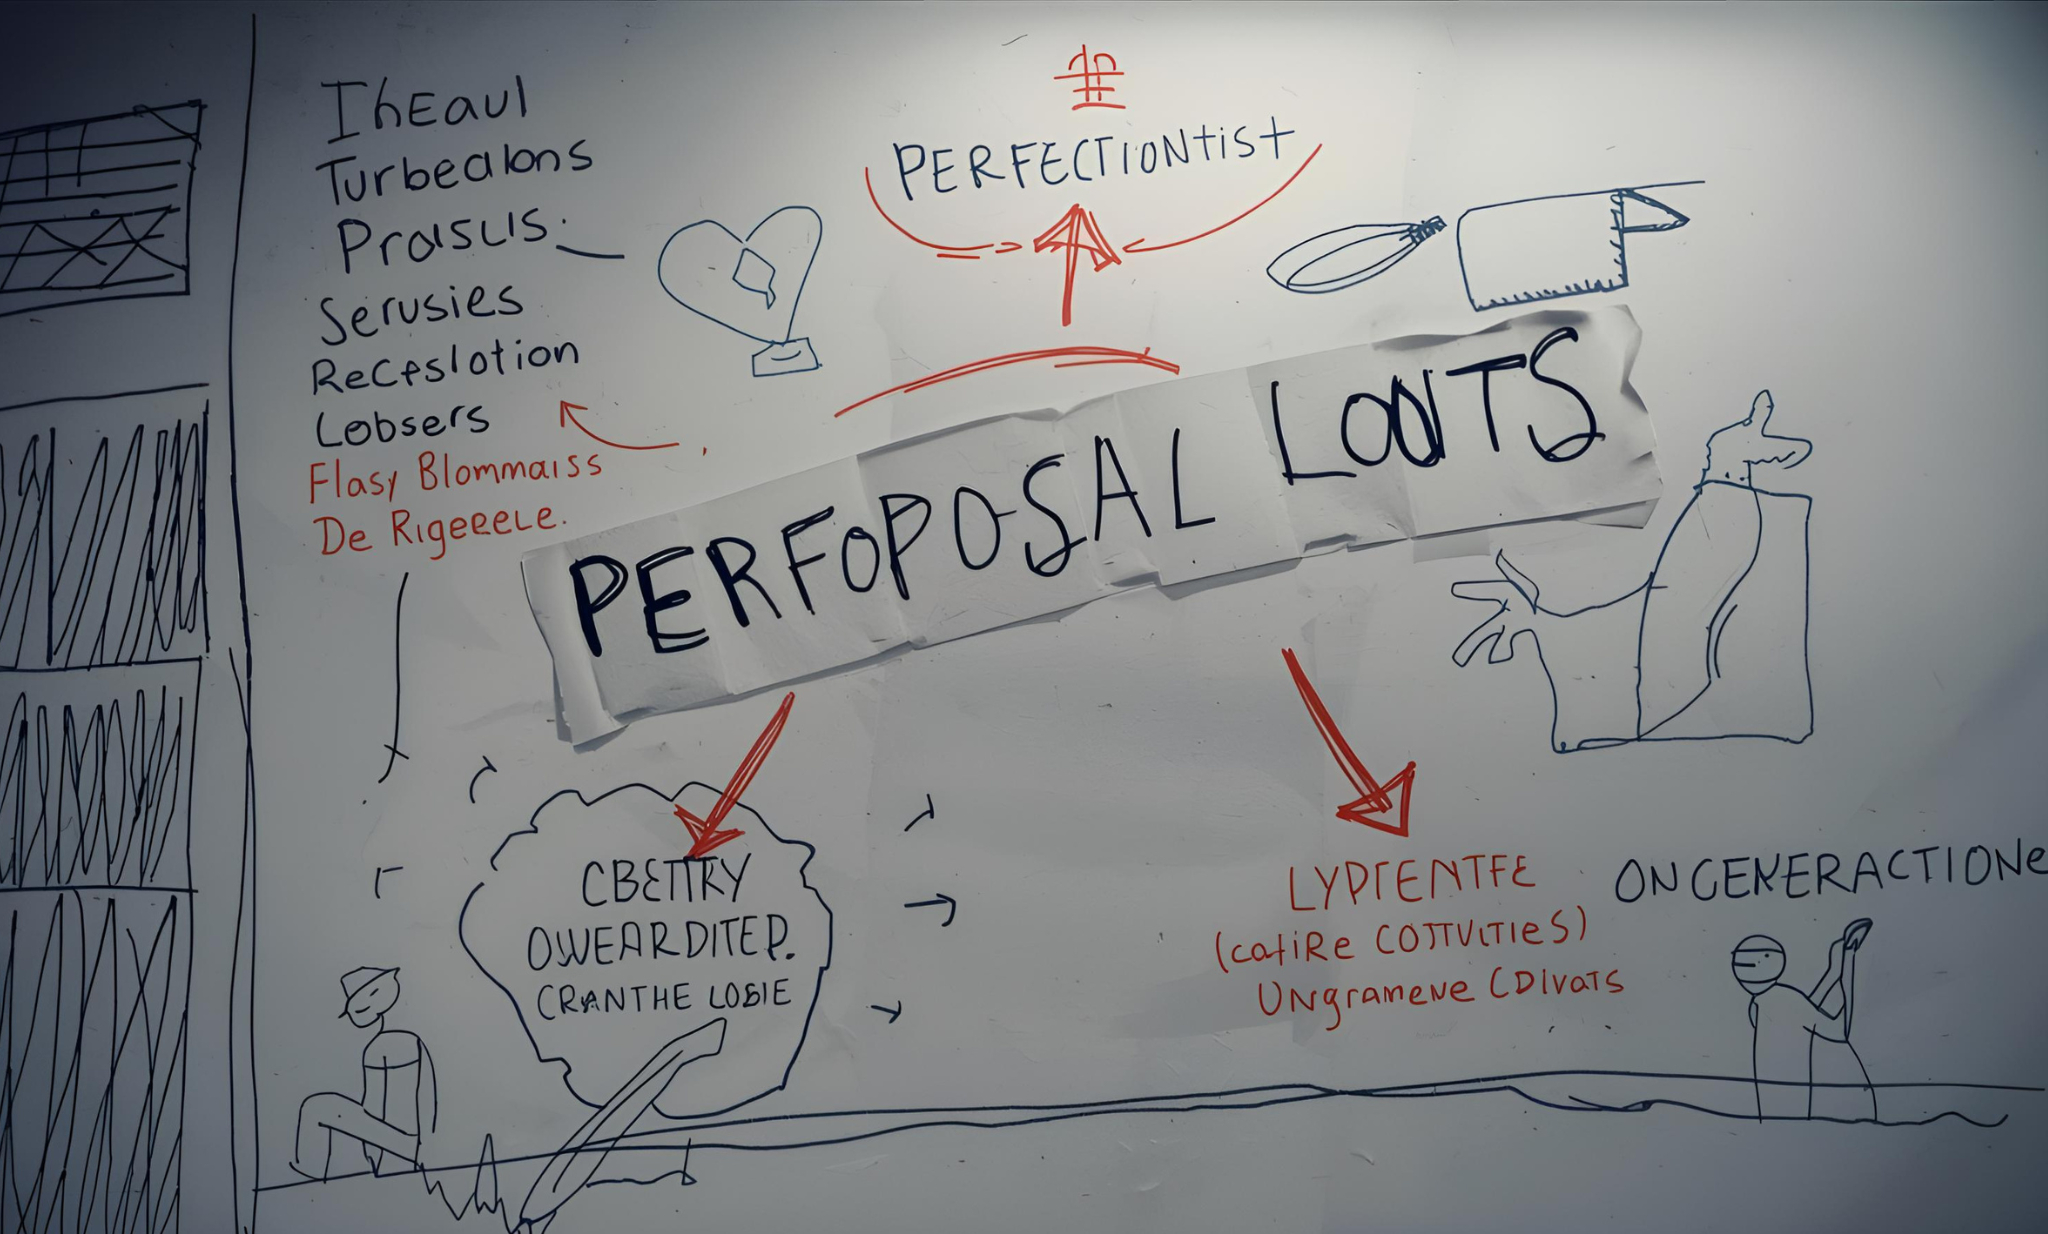 IhEaul
Turbealons
Prasus.
Serusies
Receslotion
Lobsers
Flasy Blommaiss
De Rigeeele.
PERFECTIONtist
PERFOPOSAL LOOTS
CBETTKY
OWEARDITEP.
CRANTHE LOBIE
LYPTENTFE
(catiRe COTTVITIES)
UNgrameve CDIVaTS
ONGEKERACTIONe